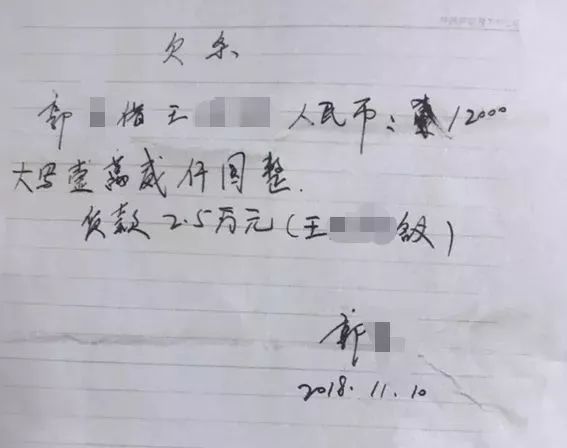 欠条
郭 借王 人民币：12000
大写壹萬贰仟圆整.
货款2.5万元(王 )
郭
2018.11.10